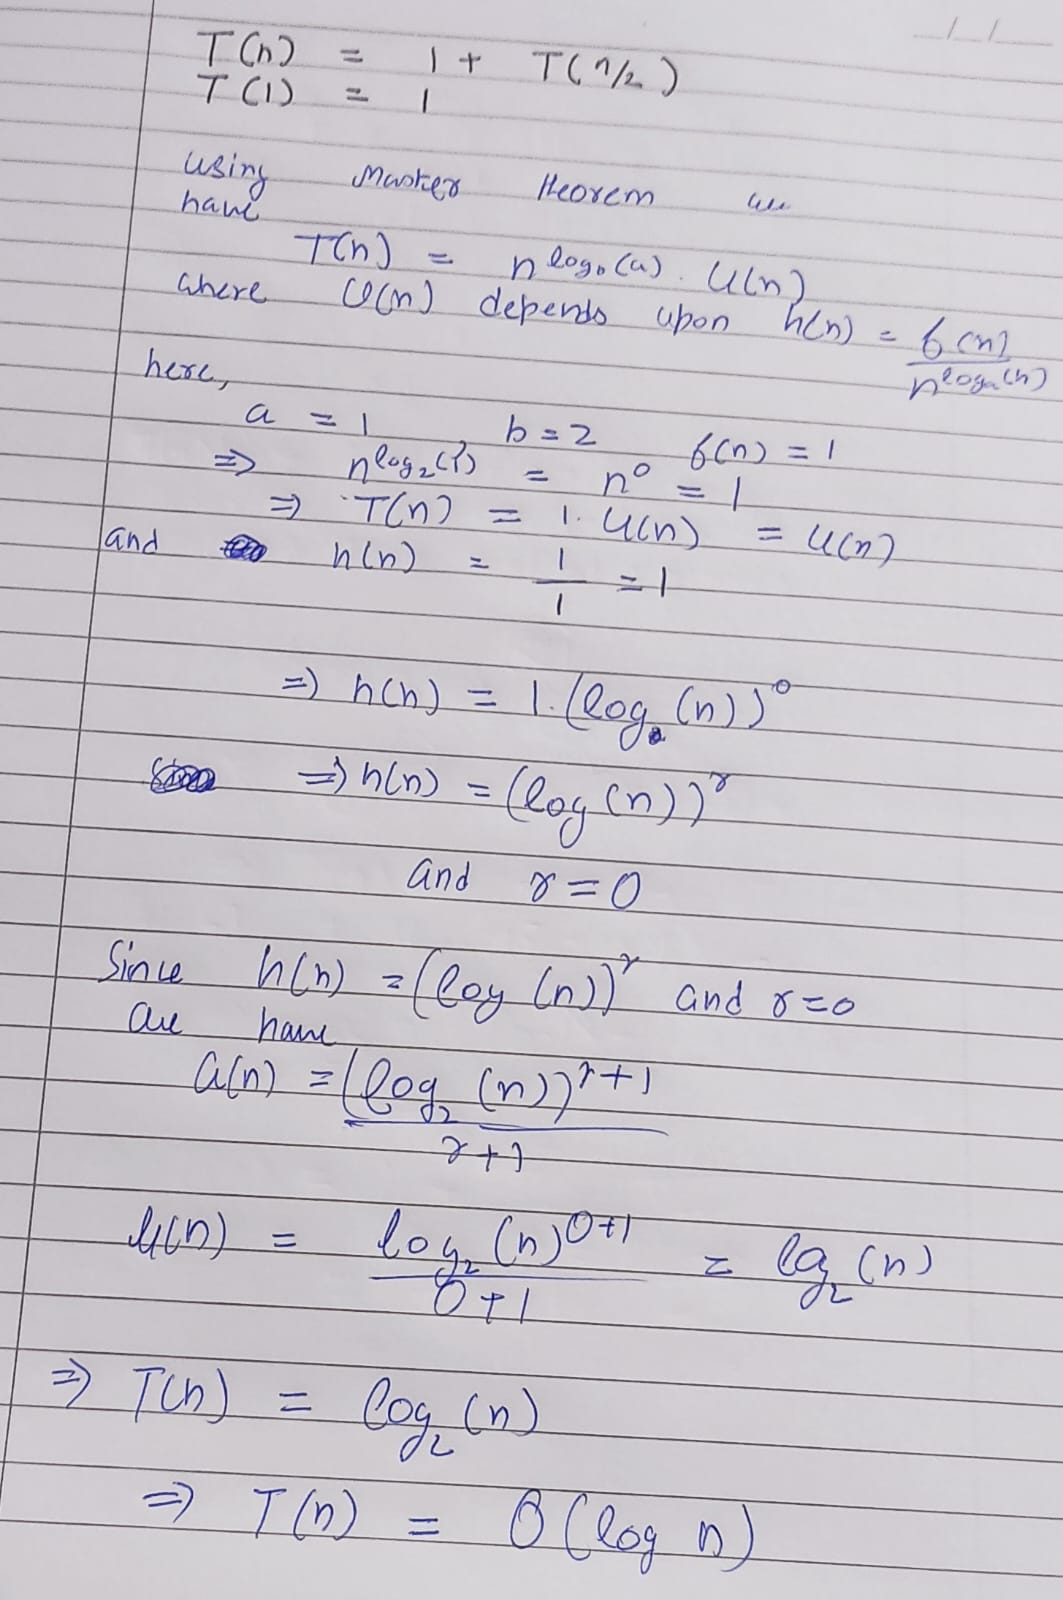 T(n) = 1 + T(n/2)
T(1) = 1
using Master theorem we
have
T(n) = n^log_b(a) . U(n)
where U(n) depends upon h(n) = f(n) / n^log_a(b)
here,
a = 1, b = 2 f(n) = 1
⇒ n^log_2(1) = n^0 = 1
⇒ T(n) = 1. U(n) = U(n)
and h(n) = 1/1 = 1
⇒ h(n) = 1.(log (n))^0
⇒ h(n) = (log (n))^r
and r = 0
Since h(n) = (log (n))^r and r = 0
we have
U(n) = (log_2 (n))^r+1 / r+1
U(n) = log_2 (n)^0+1 / 0+1 = log_2 (n)
⇒ T(n) = log_2 (n)
⇒ T(n) = O(log n)